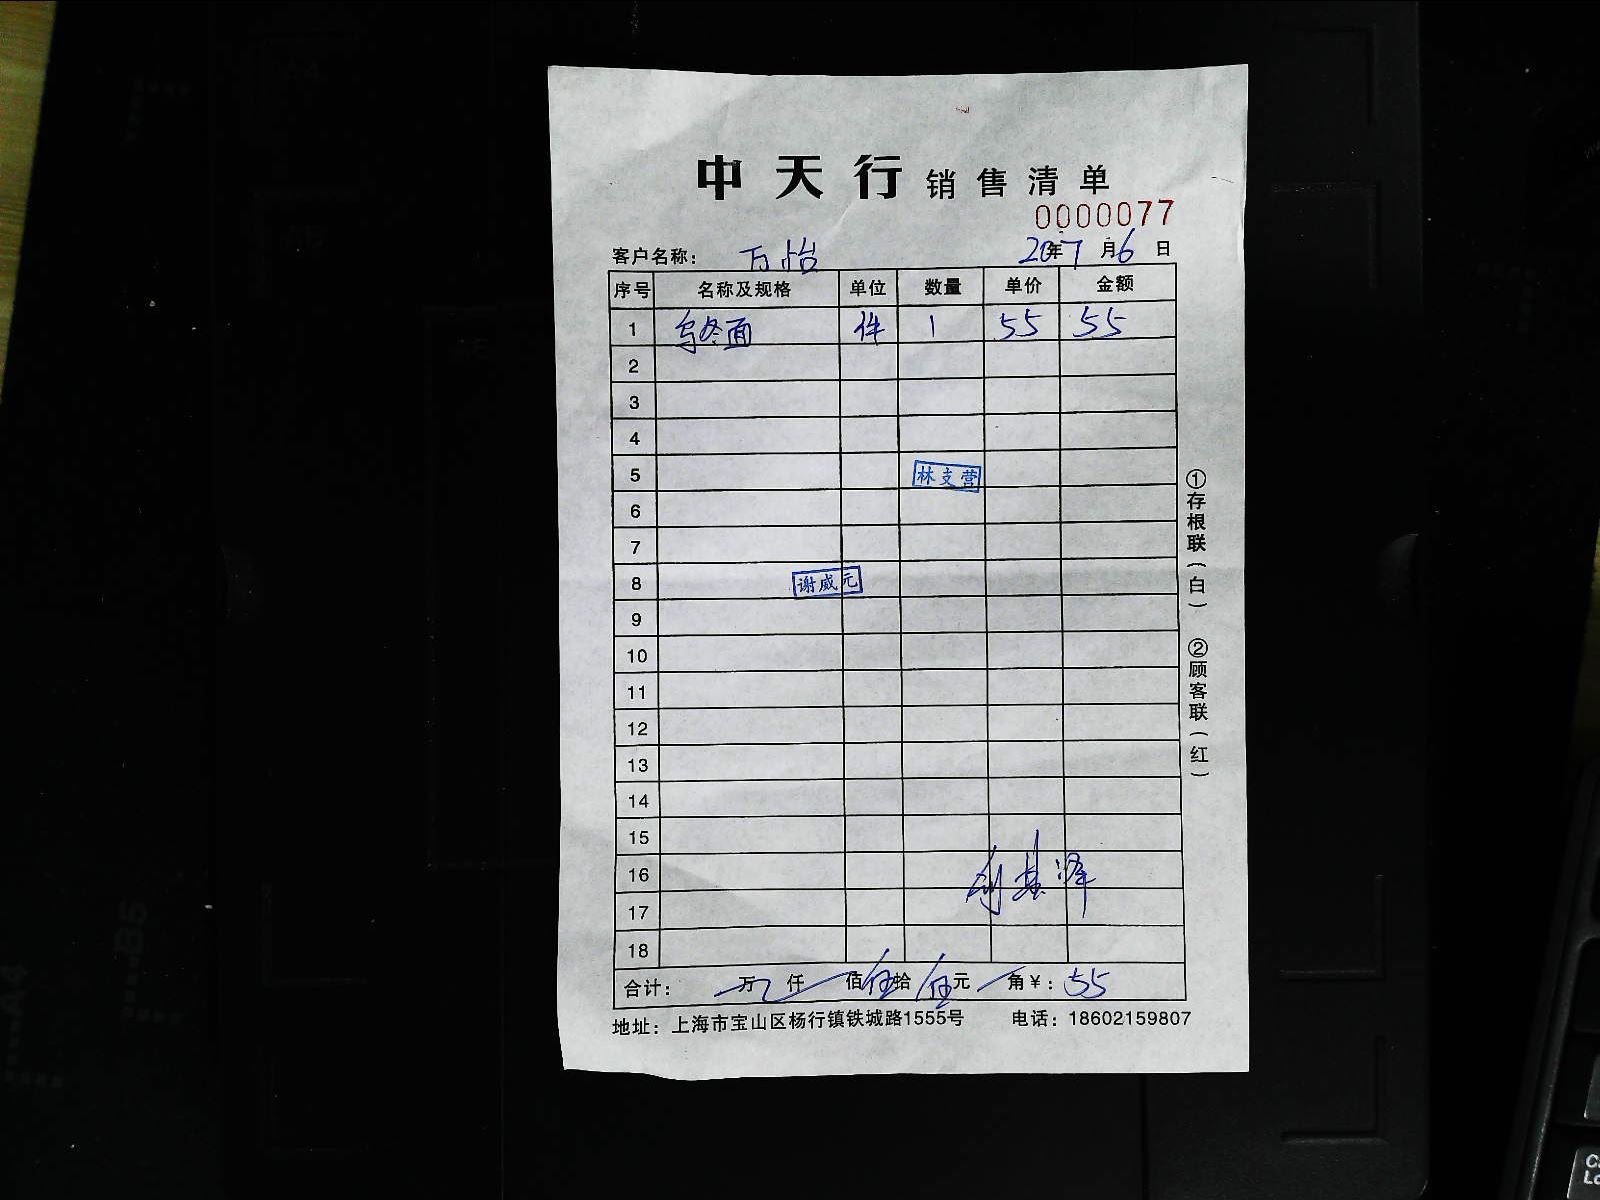 中天行销售清单
0000077
客户名称： 万怡 20年7月6日
序号 名称及规格 单位 数量 单价 金额
1 乌冬面 件 1 55 55
2
3
4
5 林支营
6
7
8 谢威元
9
10
11
12
13
14
15
16
17
18
合计： 万 仟 佰伍拾伍元 角￥：55
地址：上海市宝山区杨行镇铁城路1555号 电话：18602159807
①存根联（白） ②顾客联（红）